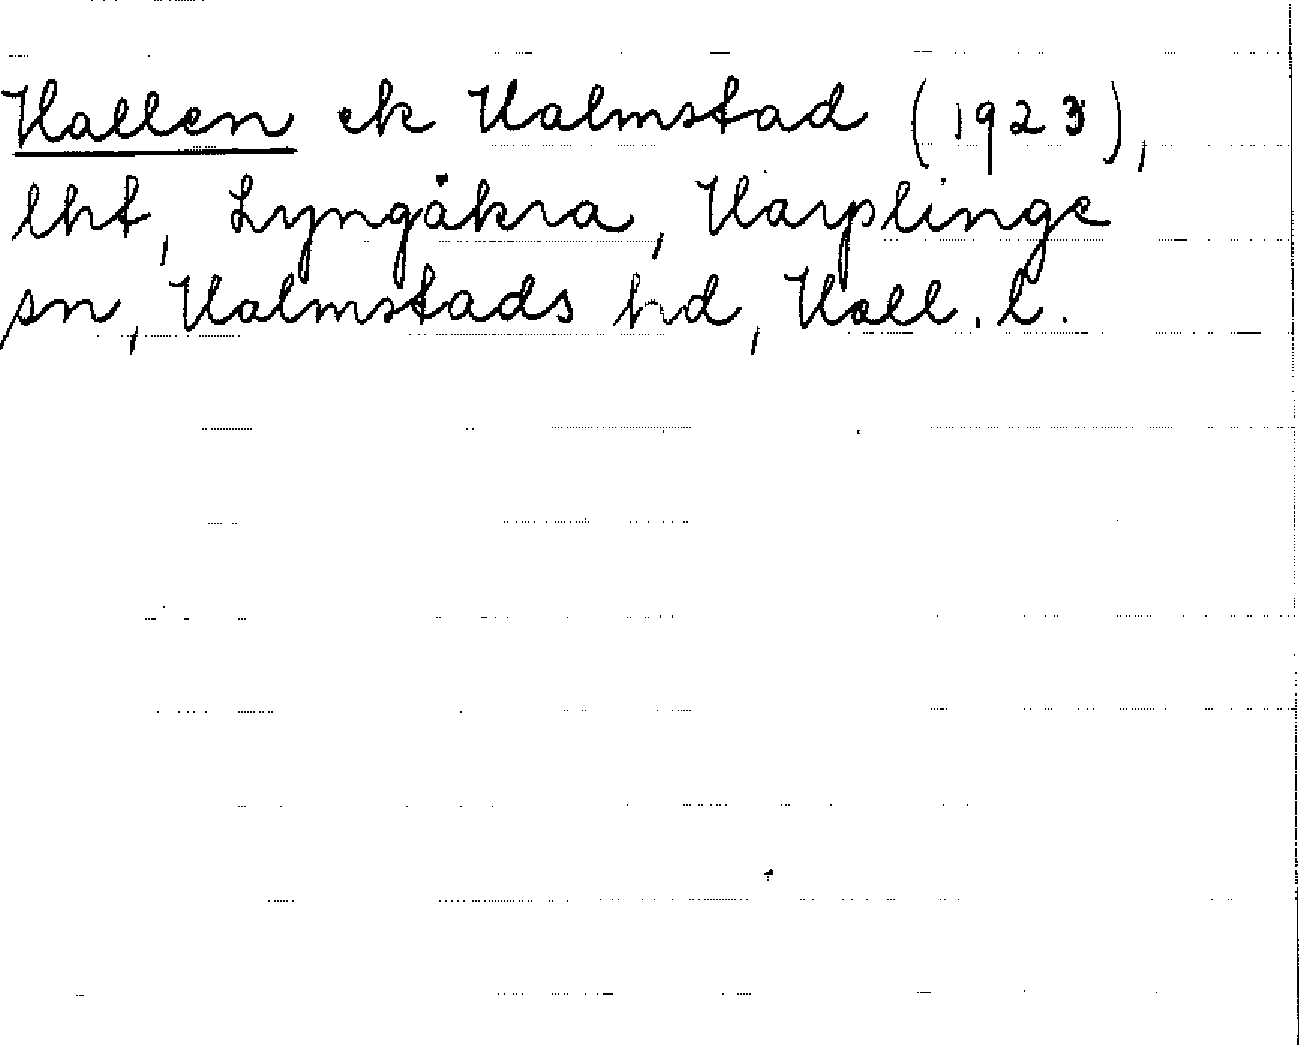 Hallen ek Halmstad (1923),
lht, Lyngåkra, Harplinge
sn, Halmstads hd, Hall. l.